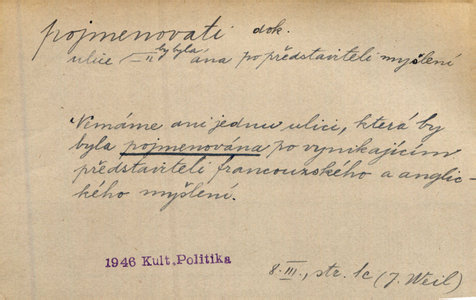 pojmenovati dok.
by byla
ulice —"— ána po představiteli myšlení
Nemáme ani jednu ulici, která by
byla pojmenována po vynikajícím
představiteli francouzského a anglic-
kého myšlení.
1946 Kult.Politika
8. III., str. 1c (J. Weil)